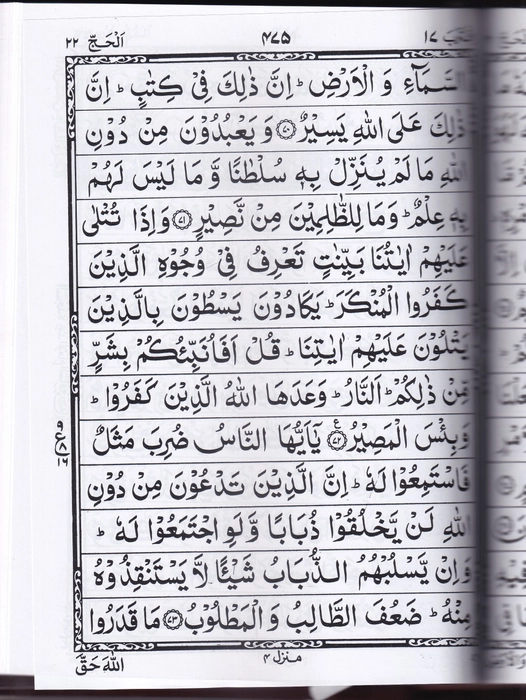 اَلْحَجّ ٢٢ ۴۷۵ ١٧
السَّمَآءِ وَ الْاَرْضِ ؕ اِنَّ ذٰلِكَ فِیْ كِتٰبٍ ؕ اِنَّ
ذٰلِكَ عَلَی اللّٰهِ یَسِیْرٌ ﴿۷۰﴾ وَ یَعْبُدُوْنَ مِنْ دُوْنِ
اللّٰهِ مَا لَمْ یُنَزِّلْ بِهٖ سُلْطٰنًا وَّ مَا لَیْسَ لَهُمْ
بِهٖ عِلْمٌ ؕ وَمَا لِلظّٰلِمِیْنَ مِنْ نَّصِیْرٍ ﴿۷۱﴾ وَاِذَا تُتْلٰی
عَلَیْهِمْ اٰیٰتُنَا بَیِّنٰتٍ تَعْرِفُ فِیْ وُجُوْهِ الَّذِیْنَ
كَفَرُوا الْمُنْكَرَ ؕ یَكَادُوْنَ یَسْطُوْنَ بِالَّذِیْنَ
یَتْلُوْنَ عَلَیْهِمْ اٰیٰتِنَا ؕ قُلْ اَفَاُنَبِّئُكُمْ بِشَرٍّ
مِّنْ ذٰلِكُمْ ؕ اَلنَّارُ ؕ وَعَدَهَا اللّٰهُ الَّذِیْنَ كَفَرُوْا ؕ
وَ بِئْسَ الْمَصِیْرُ ﴿۷۲﴾ ع یٰۤاَیُّهَا النَّاسُ ضُرِبَ مَثَلٌ
فَاسْتَمِعُوْا لَهٗ ؕ اِنَّ الَّذِیْنَ تَدْعُوْنَ مِنْ دُوْنِ
اللّٰهِ لَنْ یَّخْلُقُوْا ذُبَابًا وَّلَوِ اجْتَمَعُوْا لَهٗ ؕ
وَاِنْ یَّسْلُبْهُمُ الذُّبَابُ شَیْـًٔا لَّا یَسْتَنْقِذُوْهُ
مِنْهُ ؕ ضَعُفَ الطَّالِبُ وَ الْمَطْلُوْبُ ﴿۷۳﴾ مَا قَدَرُوا
منزل ۴
اللّٰهَ حَقَّ